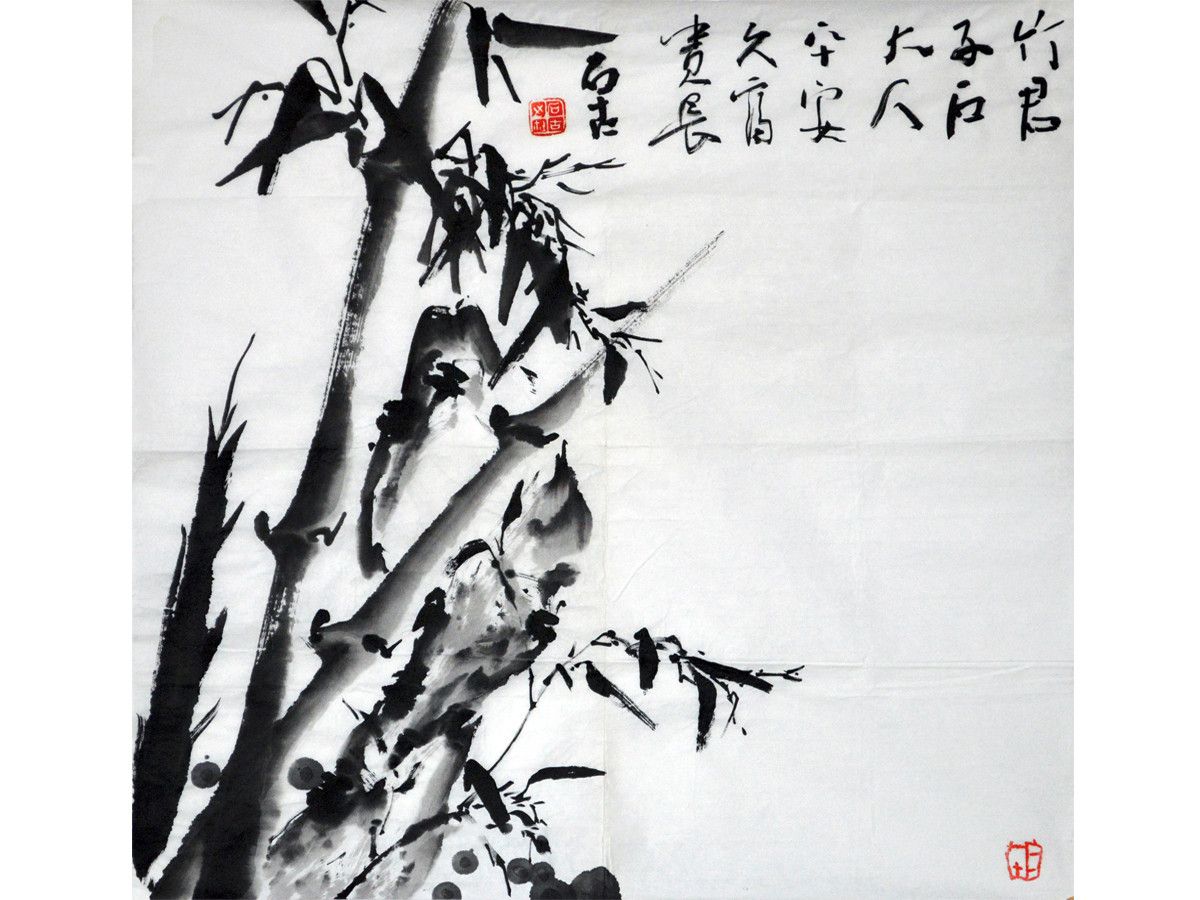 竹君
子石
大人
平安
久富
貴長
石吉